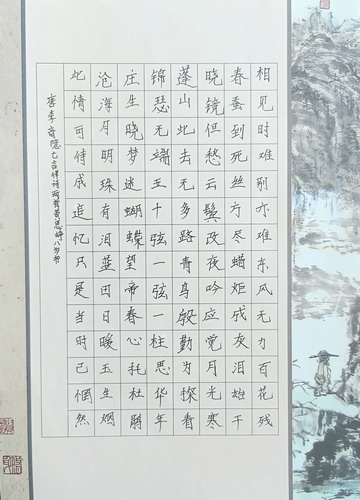 相见时难别亦难东风无力百花残
春蚕到死丝方尽蜡炬成灰泪始干
晓镜但愁云鬓改夜吟应觉月光寒
蓬山此去无多路青鸟殷勤为探看
锦瑟无端五十弦一弦一柱思华年
庄生晓梦迷蝴蝶望帝春心托杜鹃
沧海月明珠有泪蓝田日暖玉生烟
此情可待成追忆只是当时已惘然
唐李商隐七言律诗两首黄思八岁书